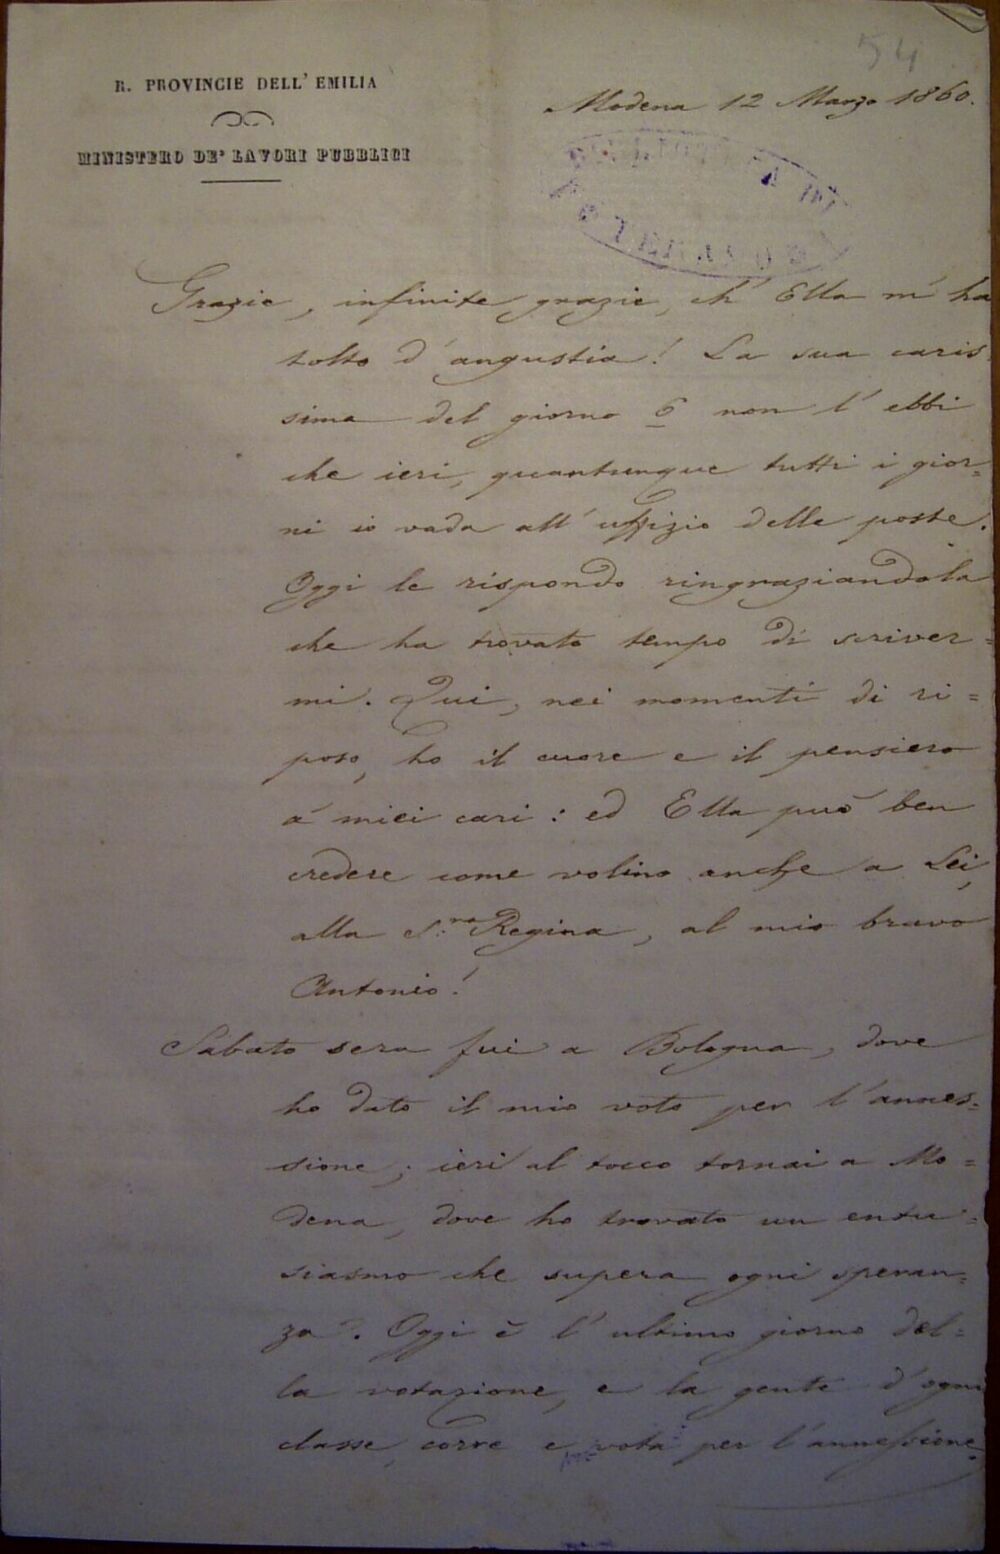 54
R. PROVINCIE DELL' EMILIA
MINISTERO DE' LAVORI PUBBLICI
Modena 12 Marzo 1860.
Grazie, infinite grazie, ch' Ella m' ha
tolto d' angustia! La sua caris=
sima del giorno 6 non l' ebbi
che ieri, quantunque tutti i gior=
ni io vada all' uffizio delle poste.
Oggi le rispondo ringraziandola
che ha trovato tempo di scriver=
mi. Qui, nei momenti di ri=
poso, ho il cuore e il pensiero
a' miei cari: ed Ella può ben
credere come volino anche a Lei,
alla S.ra Regina, al mio bravo
Antonio!
Sabato sera fui a Bologna, dove
ho dato il mio voto per l'annes=
sione; ieri al tocco tornai a Mo=
dena, dove ho trovato un entu=
siasmo che supera ogni speran=
za. Oggi è l' ultimo giorno del=
la votazione, e la gente d' ogni
classe corre e vota per l'annessione.